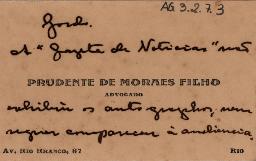 AG. 3. 2. 7. 3
Gord.
A "Gazeta de Noticias" não
PRUDENTE DE MORAES FILHO
ADVOGADO
exhibiu os autographos, nem
sequer compareceu à audiencia.
AV. RIO BRANCO, 87
RIO